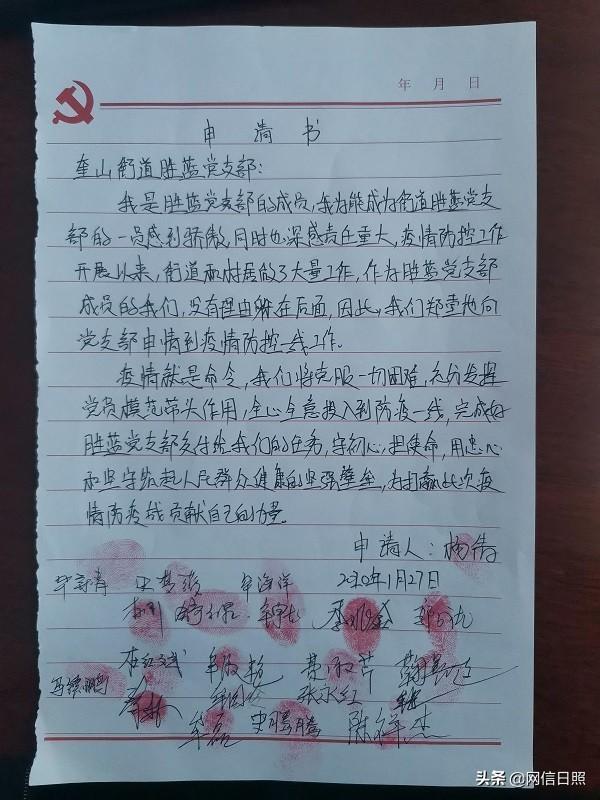 年 月 日
申请书
奎山街道胜蓝党支部:
我是胜蓝党支部的成员,我为能成为街道胜蓝党支
部的一员感到骄傲,同时也深感责任重大,疫情防控工作
开展以来,街道和村居做了大量工作,作为胜蓝党支部
成员的我们,没有理由躲在后面,因此,我们郑重地向
党支部申情到疫情防控一线工作。
疫情就是命令,我们将克服一切困难,充分发挥
党员模范带头作用,全心全意投入到防疫一线,完成好
胜蓝党支部交付给我们的任务,守初心,担使命,用忠心
和坚守筑起人民群众健康的坚强壁垒,为打赢此次疫
情防疫战贡献自己的力量。
申请人:杨伟
牟海洋 2020年1月27日
张永红
牟磊 史腾腾 陈祥杰
头条 @网信日照